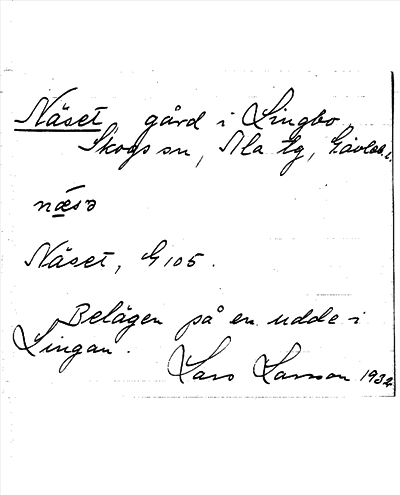 Näset gård i Lingbo,
Skogs sn, Ala tg, Gävleb. l.
næsə
Näset, G 105.
Belägen på en udde i
Lingan.
Lars Larsson 1932